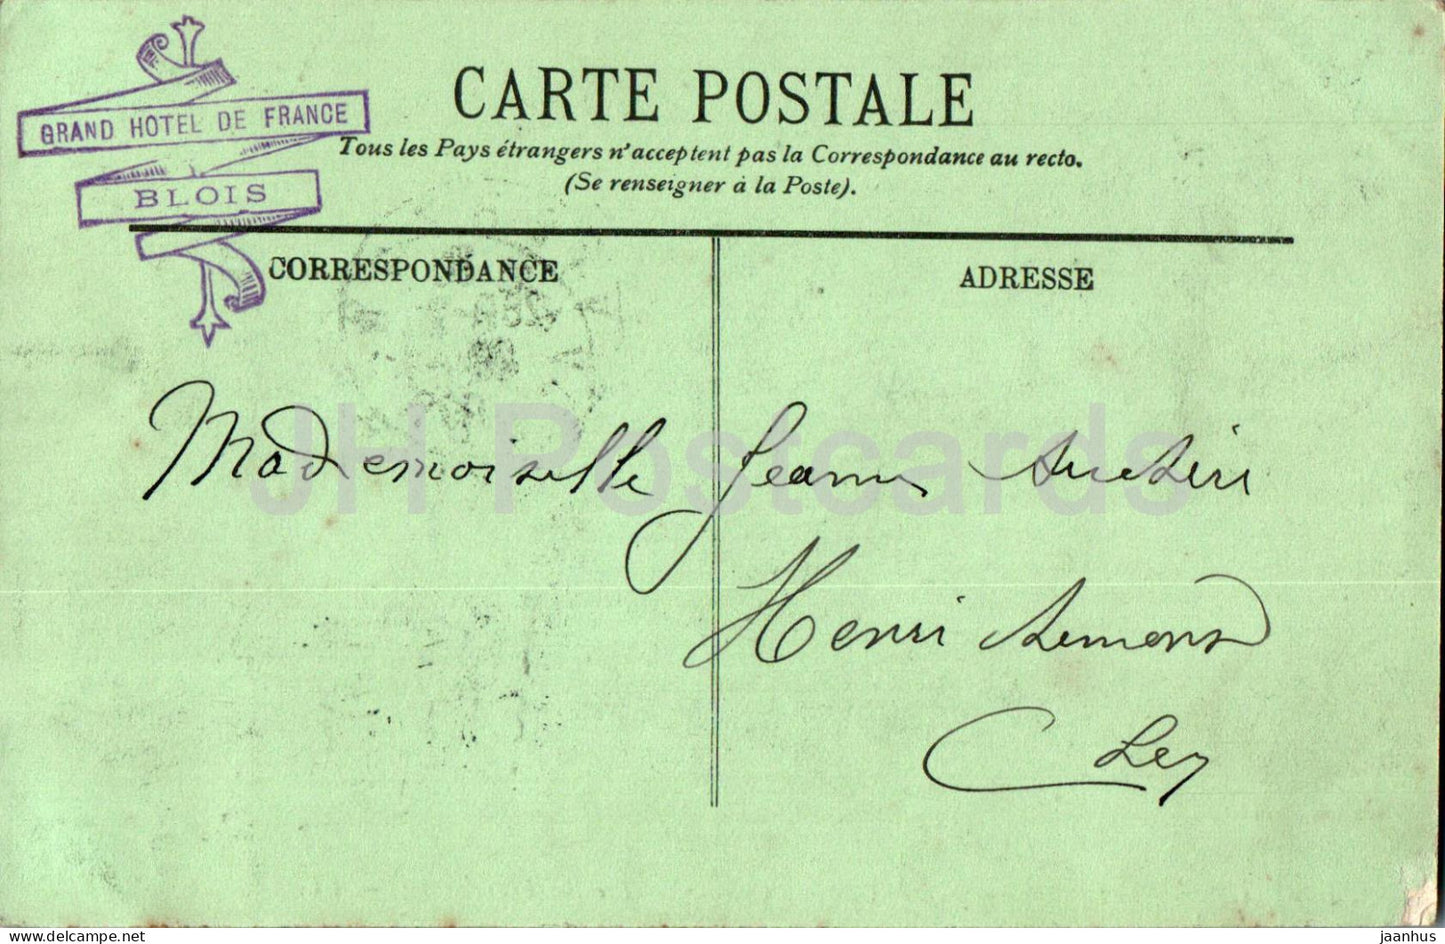 GRAND HOTEL DE FRANCE
BLOIS
CARTE POSTALE
Tous les Pays étrangers n'acceptent pas la Correspondance au recto.
(Se renseigner à la Poste).
CORRESPONDANCE
ADRESSE
JH Postcards
Mademoiselle Jeanne
Henri
jaanhus © delcampe.net